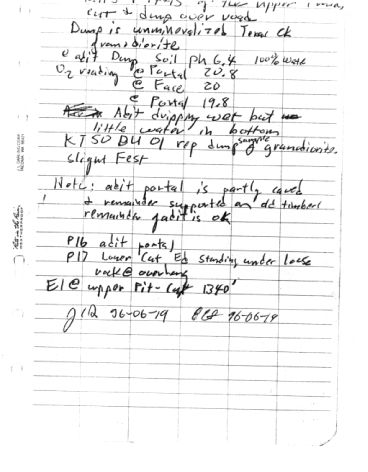 of the upper
cut & dump over road
Dump is unmineralized Texas Ck
granodiorite
adit Dump Soil ph 6.4 100% waste
O2 reading @ Portal 20.8
@ Face 20
@ Portal 19.8
Adit dripping wet but
little water in bottom
KTSODU01 rep dump sample of granodiorite.
slight Fest
Note: adit portal is partly caved
& remainder supported on old timbers
remainder of adit is ok
P16 adit portal
P17 Lower Cut Ed standing under loose
rock @ overhang
El @ upper Pit-Cut 1340'
96-06-19 96-06-19